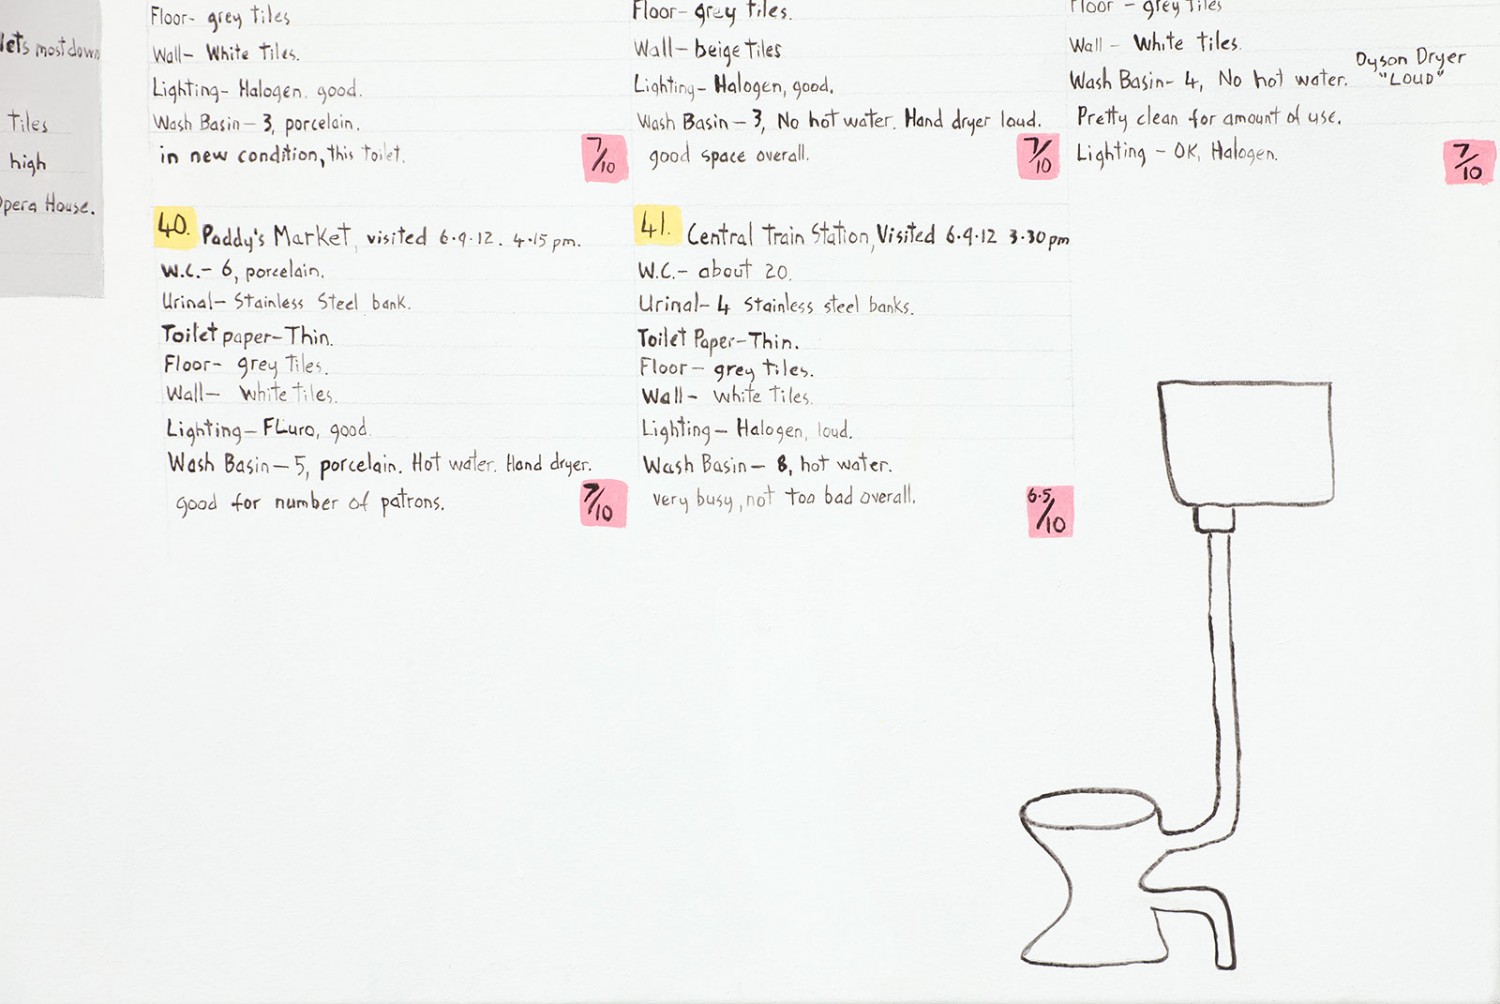 lets most down
Tiles
high
Opera House.
Floor- grey tiles
Wall- White tiles.
Lighting- Halogen. good.
Wash Basin - 3, porcelain.
in new condition, this toilet.
7/10
Floor- grey tiles.
Wall- beige tiles
Lighting- Halogen, good.
Wash Basin - 3, No hot water. Hand dryer loud.
good space overall.
7/10
Floor - grey tiles
Wall - White tiles.
Dyson Dryer
"LOUD"
Wash Basin- 4, No hot water.
Pretty clean for amount of use.
Lighting - OK, Halogen.
7/10
40. Paddy's Market, visited 6·9·12. 4·15 pm.
W.C.- 6, porcelain.
Urinal- Stainless Steel bank.
Toilet paper-Thin.
Floor- grey tiles.
Wall- White tiles.
Lighting- FLuro, good.
Wash Basin- 5, porcelain. Hot water. Hand dryer.
good for number of patrons.
7/10
41. Central Train Station, Visited 6·9·12 3·30pm
W.C.- about 20.
Urinal- 4 Stainless steel banks.
Toilet Paper-Thin.
Floor- grey tiles.
Wall- White tiles.
Lighting- Halogen, loud.
Wash Basin- 8, hot water.
very busy, not too bad overall.
6·5/10